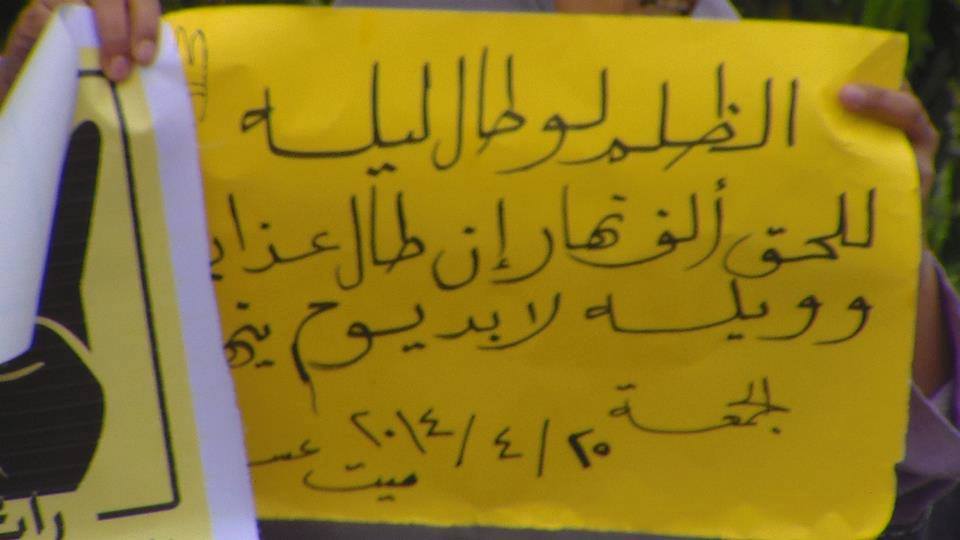 الظلم لو طال ليله
للحق ألف نهار إن طال عذاب
وويله لابد يوم
الجمعة
٢٥/٤/٢٠١٤
ميت